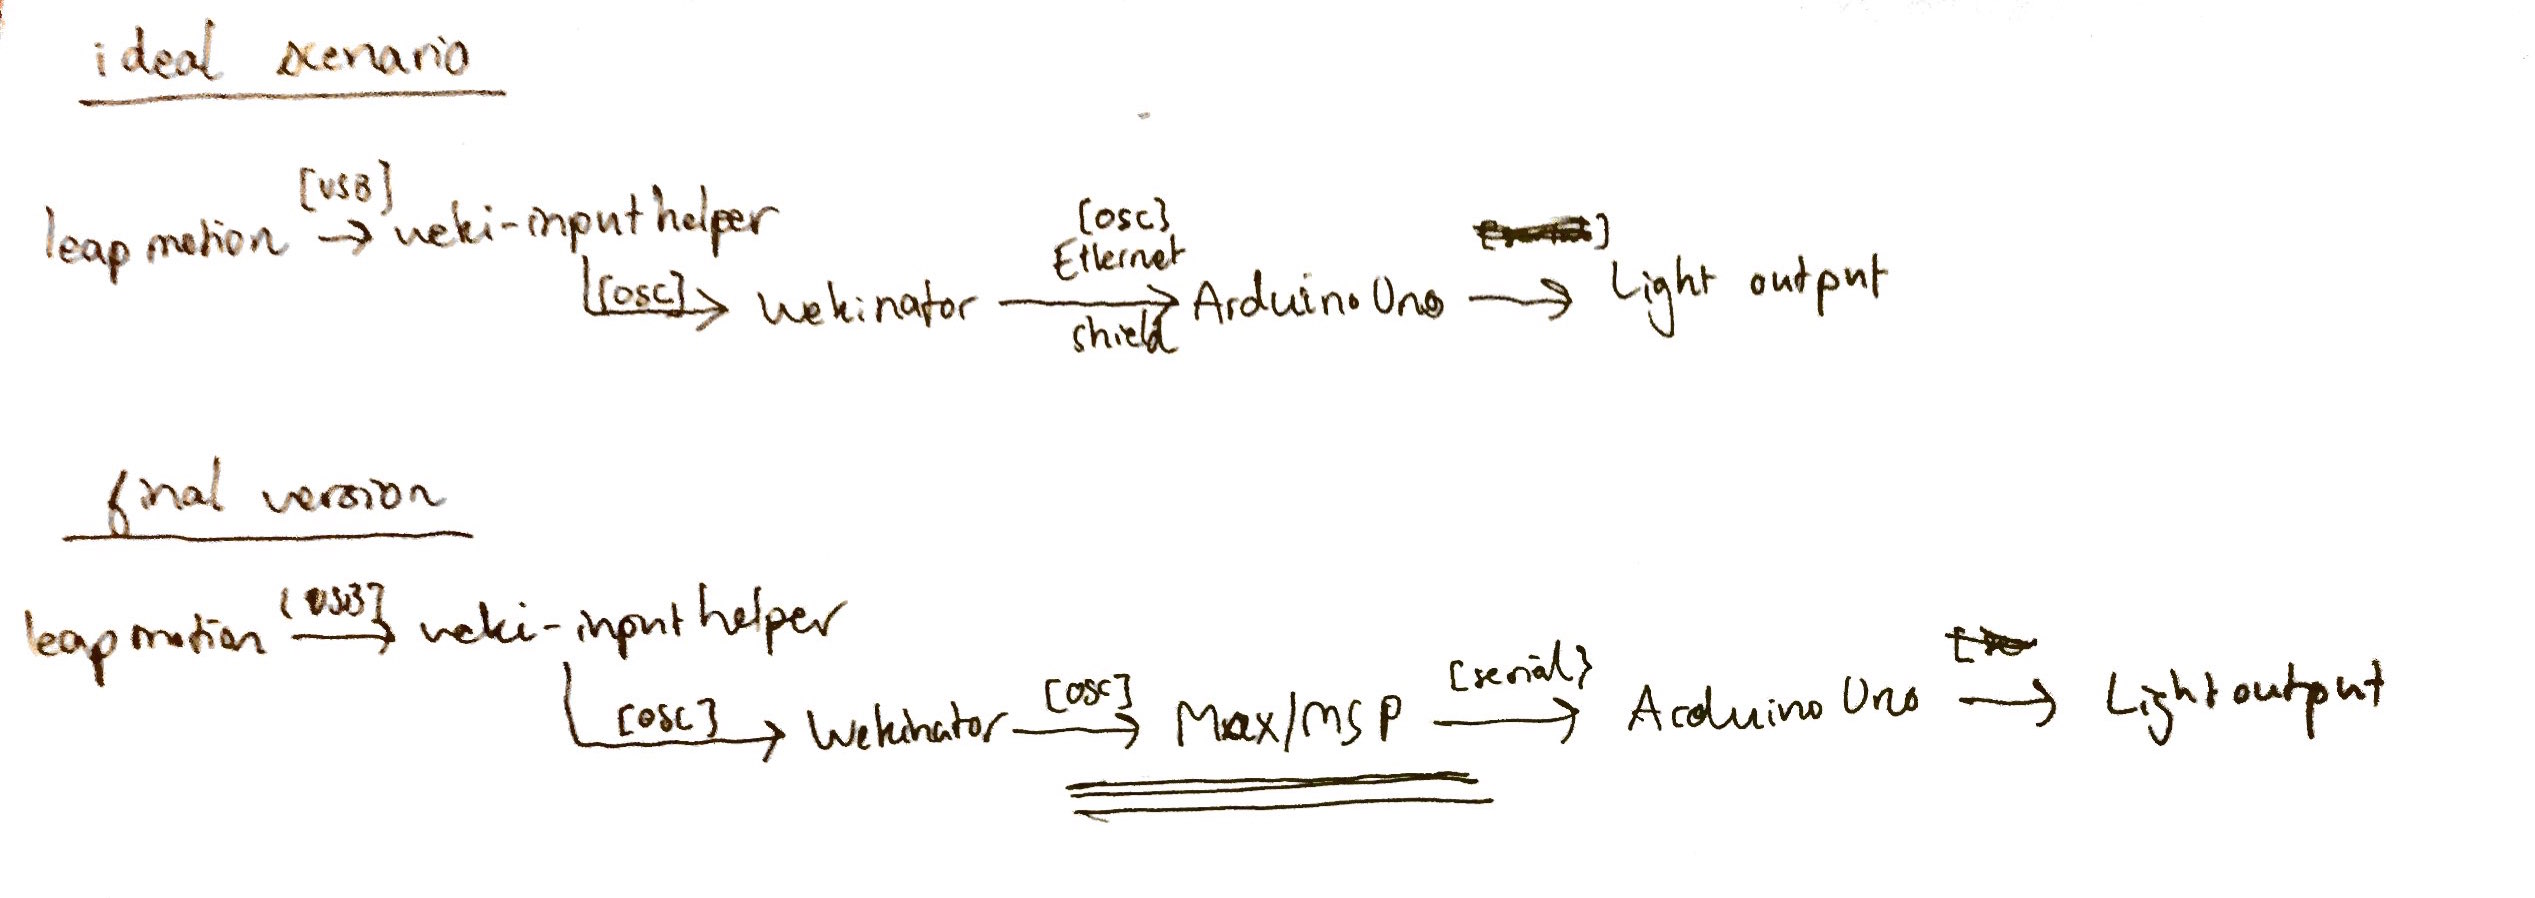 ideal scenario
[USB]
leap motion → weki-input helper
[osc] → wekinator
[osc]
Ethernet
shield
→ Arduino Uno → Light output
final version
[USB]
leap motion → weki-input helper
[osc] → Wekinator [osc] → Max/MSP [serial] → Arduino Uno → Light output